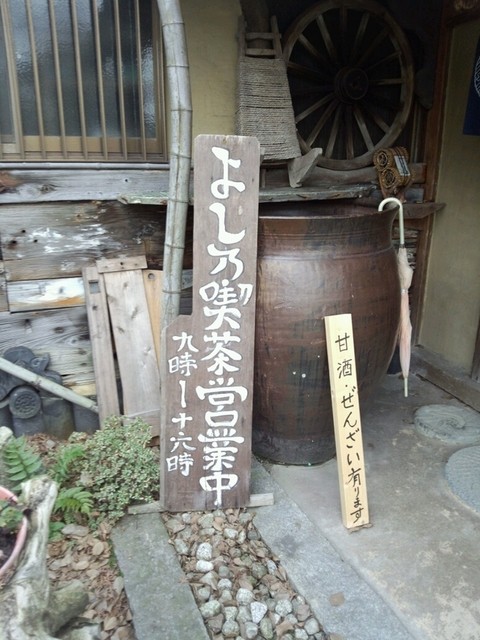 よし乃喫茶営業中
九時ー十六時
甘酒・ぜんざい有ります